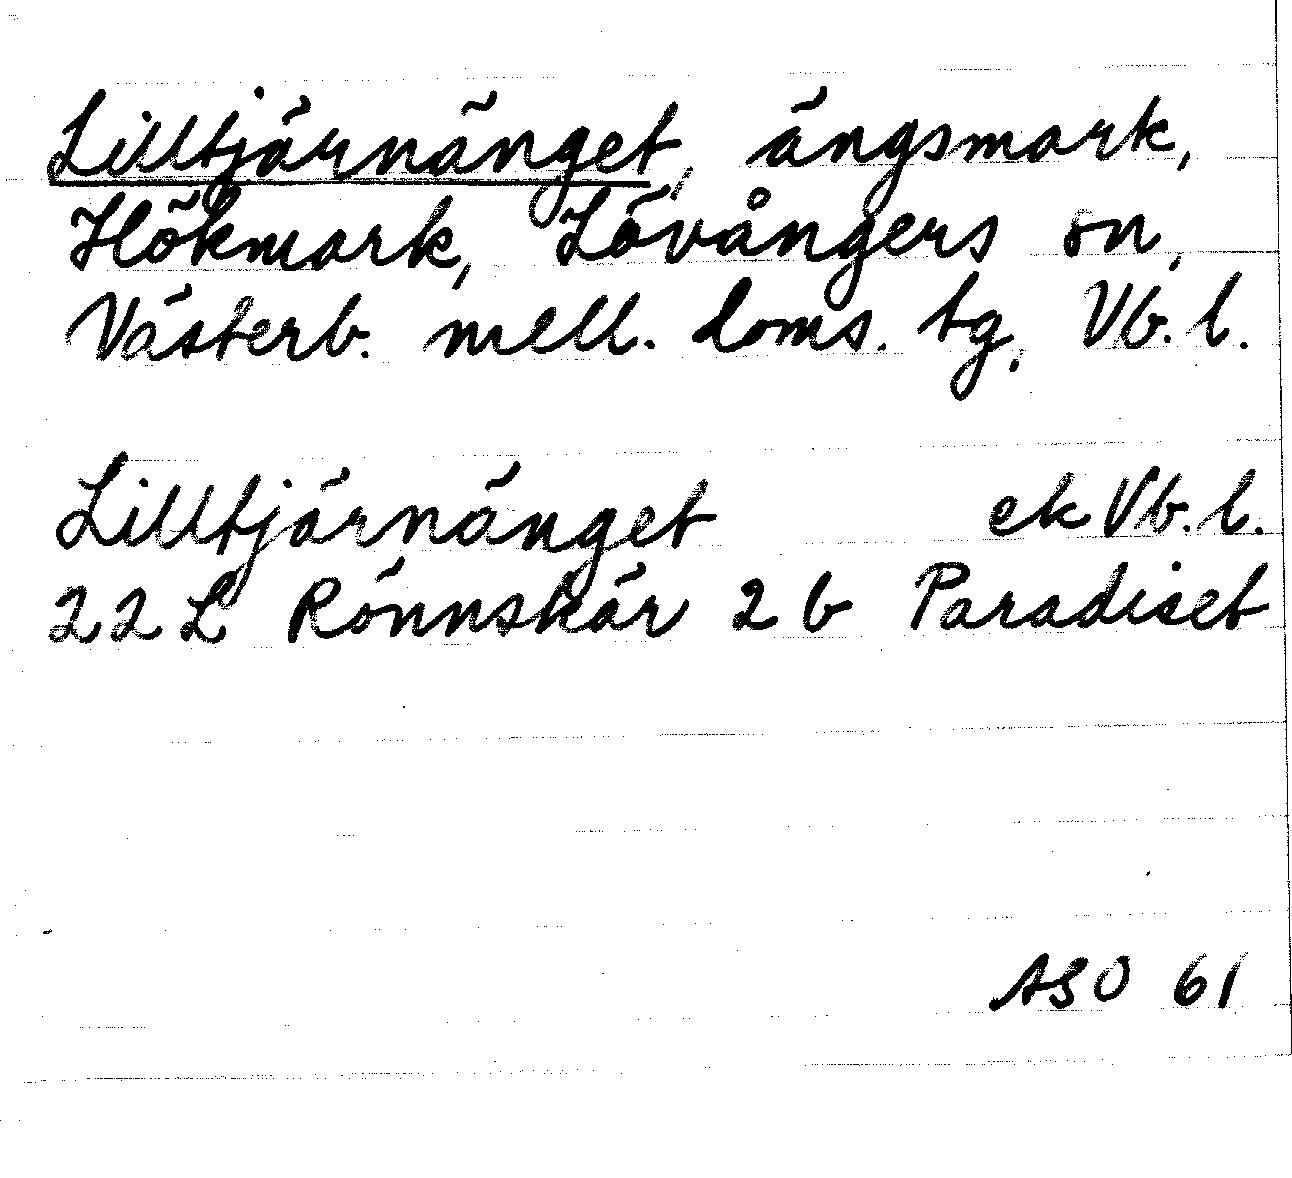 Lilltjärnänget, ängsmark,
Hökmark, Lövångers sn,
Västerb. mell. doms. tg, Vb. l.
Lilltjärnänget ek Vb. l.
22 L Rönnskär 2 b Paradiset
ASO 61